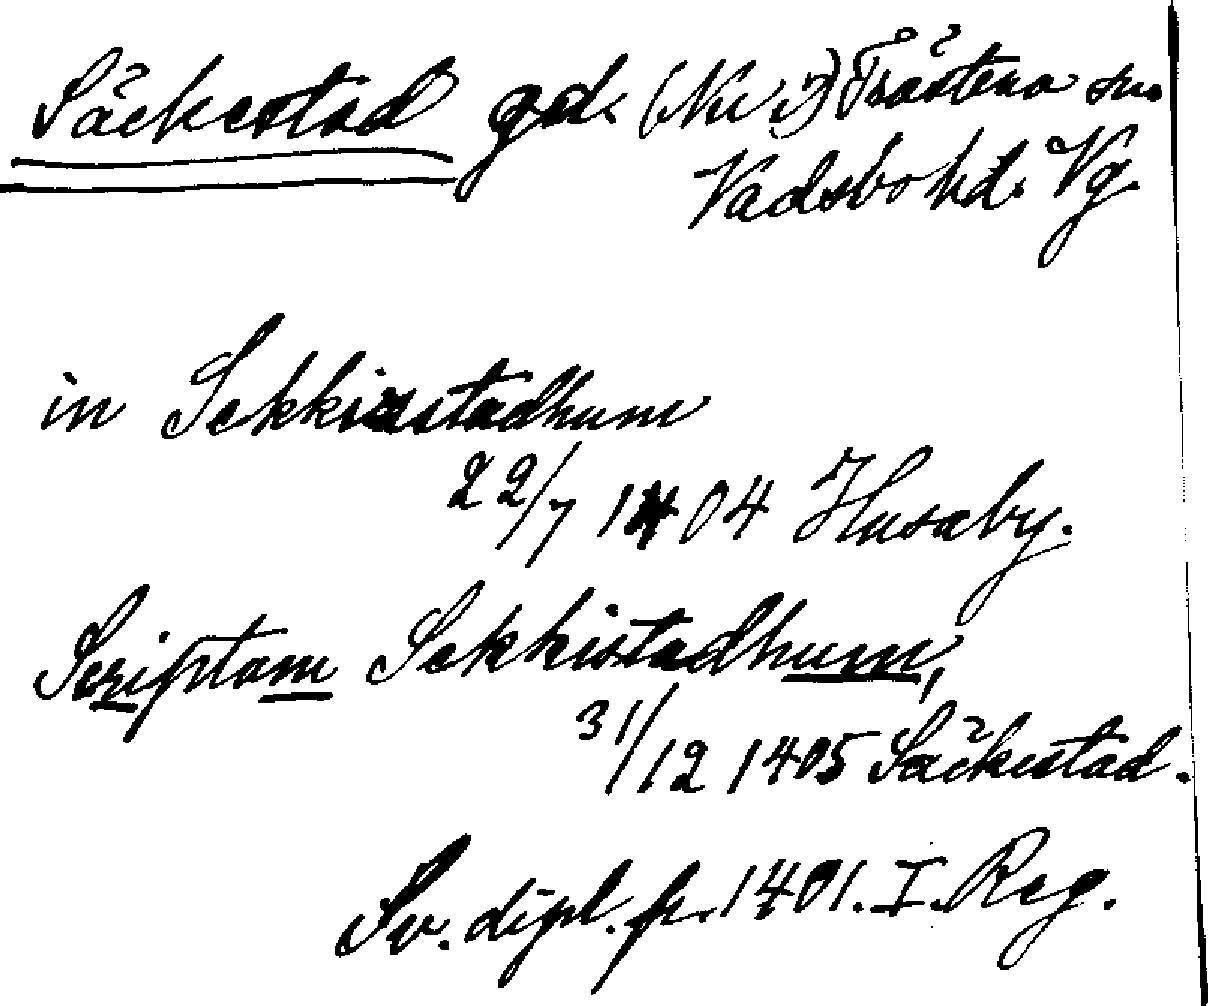 Säckestad gd. (Nu ?) Trästena sn.
Vadsbo hd. Vg.
in Sekkiastadhum
22/7 1404 Husaby.
Scriptom Sekkistadhum,
31/12 1405 Säckestad.
Sv. dipl. fr. 1401. I. Reg.